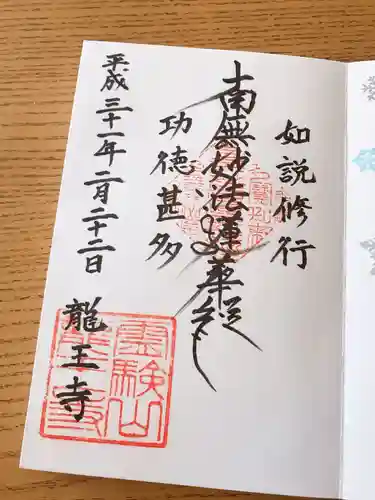 如説修行
南無妙法蓮華経
功徳甚多
平成三十一年二月二十二日
龍王寺
霊験山
龍王寺